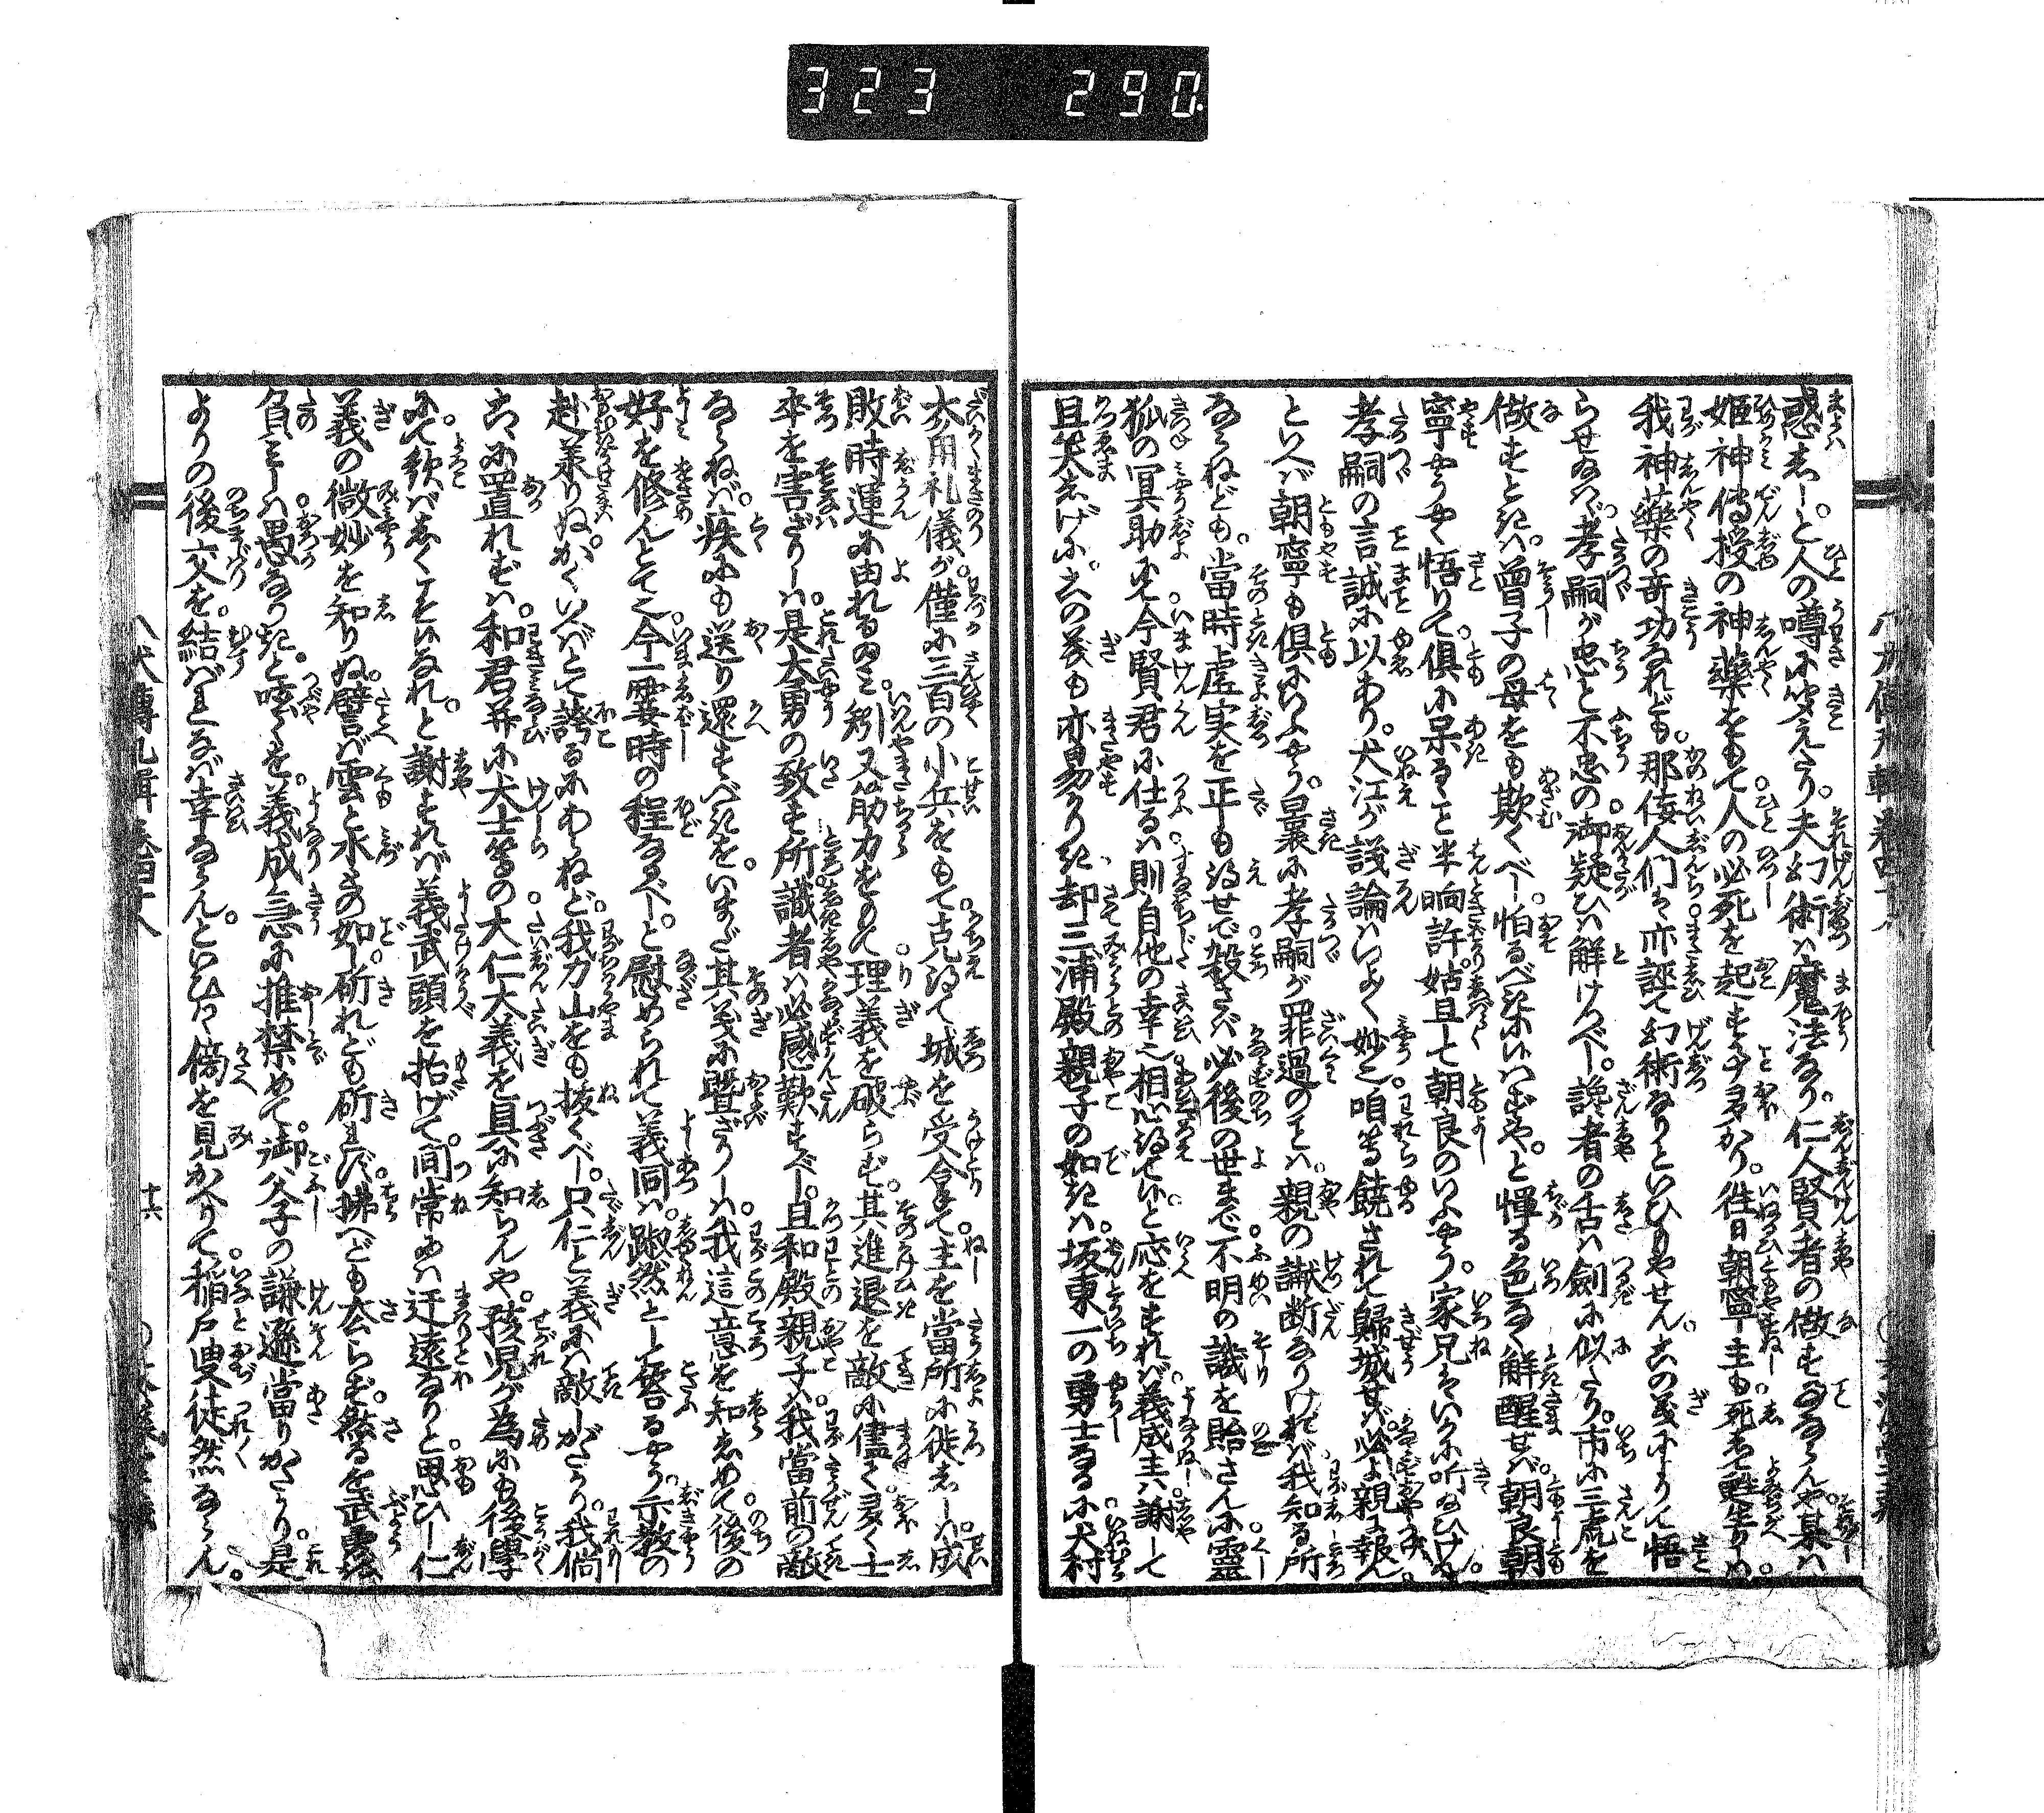 323 290.
惑しゝと人の噂に笑えたり。夫幻術ハ魔法なり。仁人賢者の做す事ならんや。某ハ
姫神傳授の神藥をもて人の必死を起す事多かり。徃日朝寧主も死を甦生りぬ。
我神藥の奇功なれども。那侫人們ハ亦誣て幻術なりといひもやせん。この義によりん悟
らせ給へ。孝嗣が忠と不忠の御疑ひハ解けつべし。讒者の舌ハ劒に似たり。市に三虎を
做すときハ曽子の母をも欺くべし。怕るべきにハいハずや。と憚る色なく解醒せバ。朝良朝
寧やうやく悟りて。倶に呆るゝこと半晌許。姑且して朝良のいふやう。家兄ハいかに听給ひけん。
孝嗣の言誠に以あり。犬江が議論ハいよゝ妙之。咱等饒されて歸城せバ。必よ親に報ん
といへバ朝寧も倶にいふやう。曩に孝嗣が罪過のことハ。親の讞断なりけれバ我知る所
ならねども。當時虚実を正も得せで殺さバ必後の世まで不明の譏を貽さんに。靈
狐の冥助にて今賢君に仕るハ。則自他の幸之。相心得てよと应をすれバ。義成主ハ謝して
且笑しげに。その義も亦易かりき。却三浦殿親子の如きハ。坂東一の勇士なるに。犬村
大角礼儀が僅に三百の小兵をもて。克得て城を受合て。主を當所に徙しゝハ。成
敗時運に由れるのミ。矧又筋力をもて理義を破らず。其進退を敵に儘して。多く士
卒を害ざりしハ。是大勇の致す所。識者ハ必感歎すべし。且和殿親子ハ我當前の敵
ならねバ。疾にも送り還すべきを。いまだ其義に曁ざりしハ。我這意を知しめて。後の
好を修んとて之。今一霎時の程なるべし。と慰められて義同ハ。踧然として答るやう。示教の
趣承りぬ。かくいへバとて誇るにあらねど。我力山をも抜くべし。只仁と義にハ敵しがたかり。我倘
こゝに置れずハ。和君并に犬士等の大仁大義を具に知らんや。孩児が為にも後學
にて。歓バしくこそいなれ。と謝すれバ義武頭を抬げて。間常にハ迂遠なりと思ひし仁
義の微妙を知りぬ。譬バ雲と水との如し。斫れども斫れず。拂へども去らず。然るを武勇
負ミしハ愚なりき。と呟くを。義成急に推禁めて。御父子の謙遜當りがたかり。是
よりの後交を。結バれなバ幸ならん。といひかけ傍を見かへりて。稲戸叟徒然ならん。
八犬傳九輯 巻四十八
十六